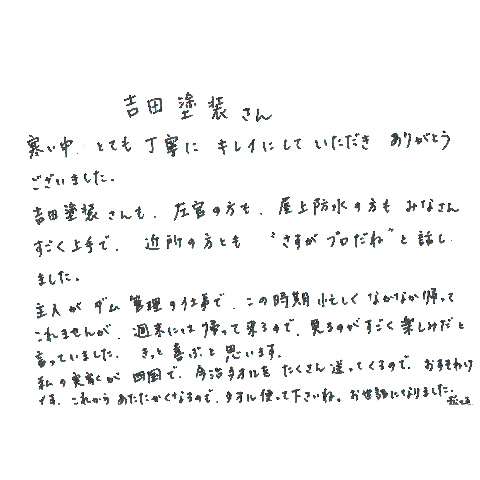 吉田塗装さん
寒い中、とても丁寧に キレイにして いただき ありがとう
ございました。
吉田塗装さんも、左官の方も、屋上防水の方も みなさん
すごく上手で、近所の方とも “さすが プロだね” と話し
ました。
主人が ダム管理の仕事で、この時期 忙しく なかなか帰って
これませんが、週末には帰って来るので、見るのがすごく楽しみだと
言っていました。きっと喜ぶと思います。
私の実家が 四国で、今治タオルを たくさん送ってくるので、おすそわけ
です。これから あたたかくなるので、タオル使って下さいね。お世話になりました。